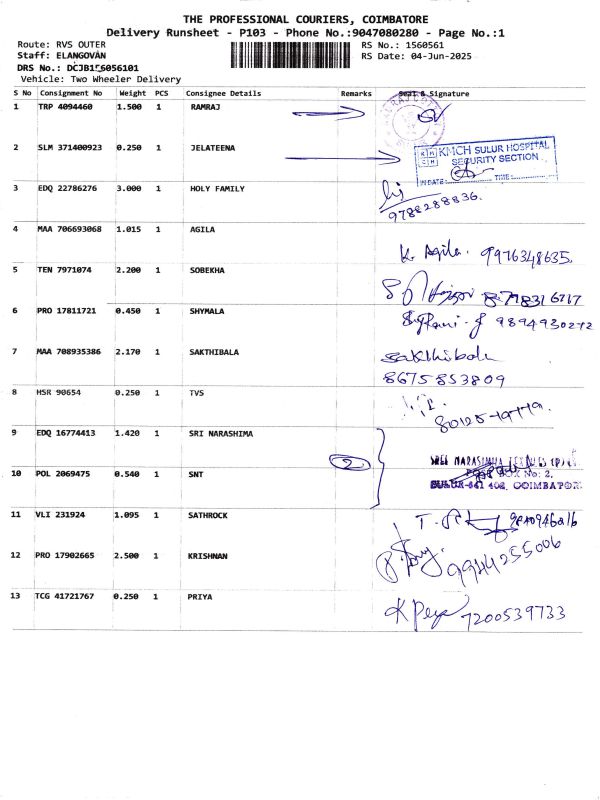 THE PROFESSIONAL COURIERS, COIMBATORE
Delivery Runsheet - P103 - Phone No.:9047080280 - Page No.:1
Route: RVS OUTER RS No.: 1560561
Staff: ELANGOVAN RS Date: 04-Jun-2025
DRS No.:
Vehicle: Two Wheeler Delivery
S No Consignment No Weight PCS Consignee Details Remarks Seal & Signature
1 TRP 4094460 1.500 1 RAMRAJ
2 SLM 371400923 0.250 1 JELATEENA
KMCH SULUR HOSPITAL
SECURITY SECTION
IN DATE: TIME:
3 EDQ 22786276 3.000 1 HOLY FAMILY
9788288836.
4 MAA 706693068 1.015 1 AGILA
K. Agila. 9976348635.
5 TEN 7971074 2.200 1 SOBEKHA
6 PRO 17811721 0.450 1 SHYMALA
9894930272
7 MAA 708935386 2.170 1 SAKTHIBALA
Sakthibala
8675853809
8 HSR 90654 0.250 1 TVS
9 EDQ 16774413 1.420 1 SRI NARASHIMA
2
SREE NARASIMHA TEXTILES (P)
BOX No: 2,
SULUR-641 402, COIMBATORE
10 POL 2069475 0.540 1 SNT
11 VLI 231924 1.095 1 SATHROCK
12 PRO 17902665 2.500 1 KRISHNAN
9944255006
13 TCG 41721767 0.250 1 PRIYA
7200539733